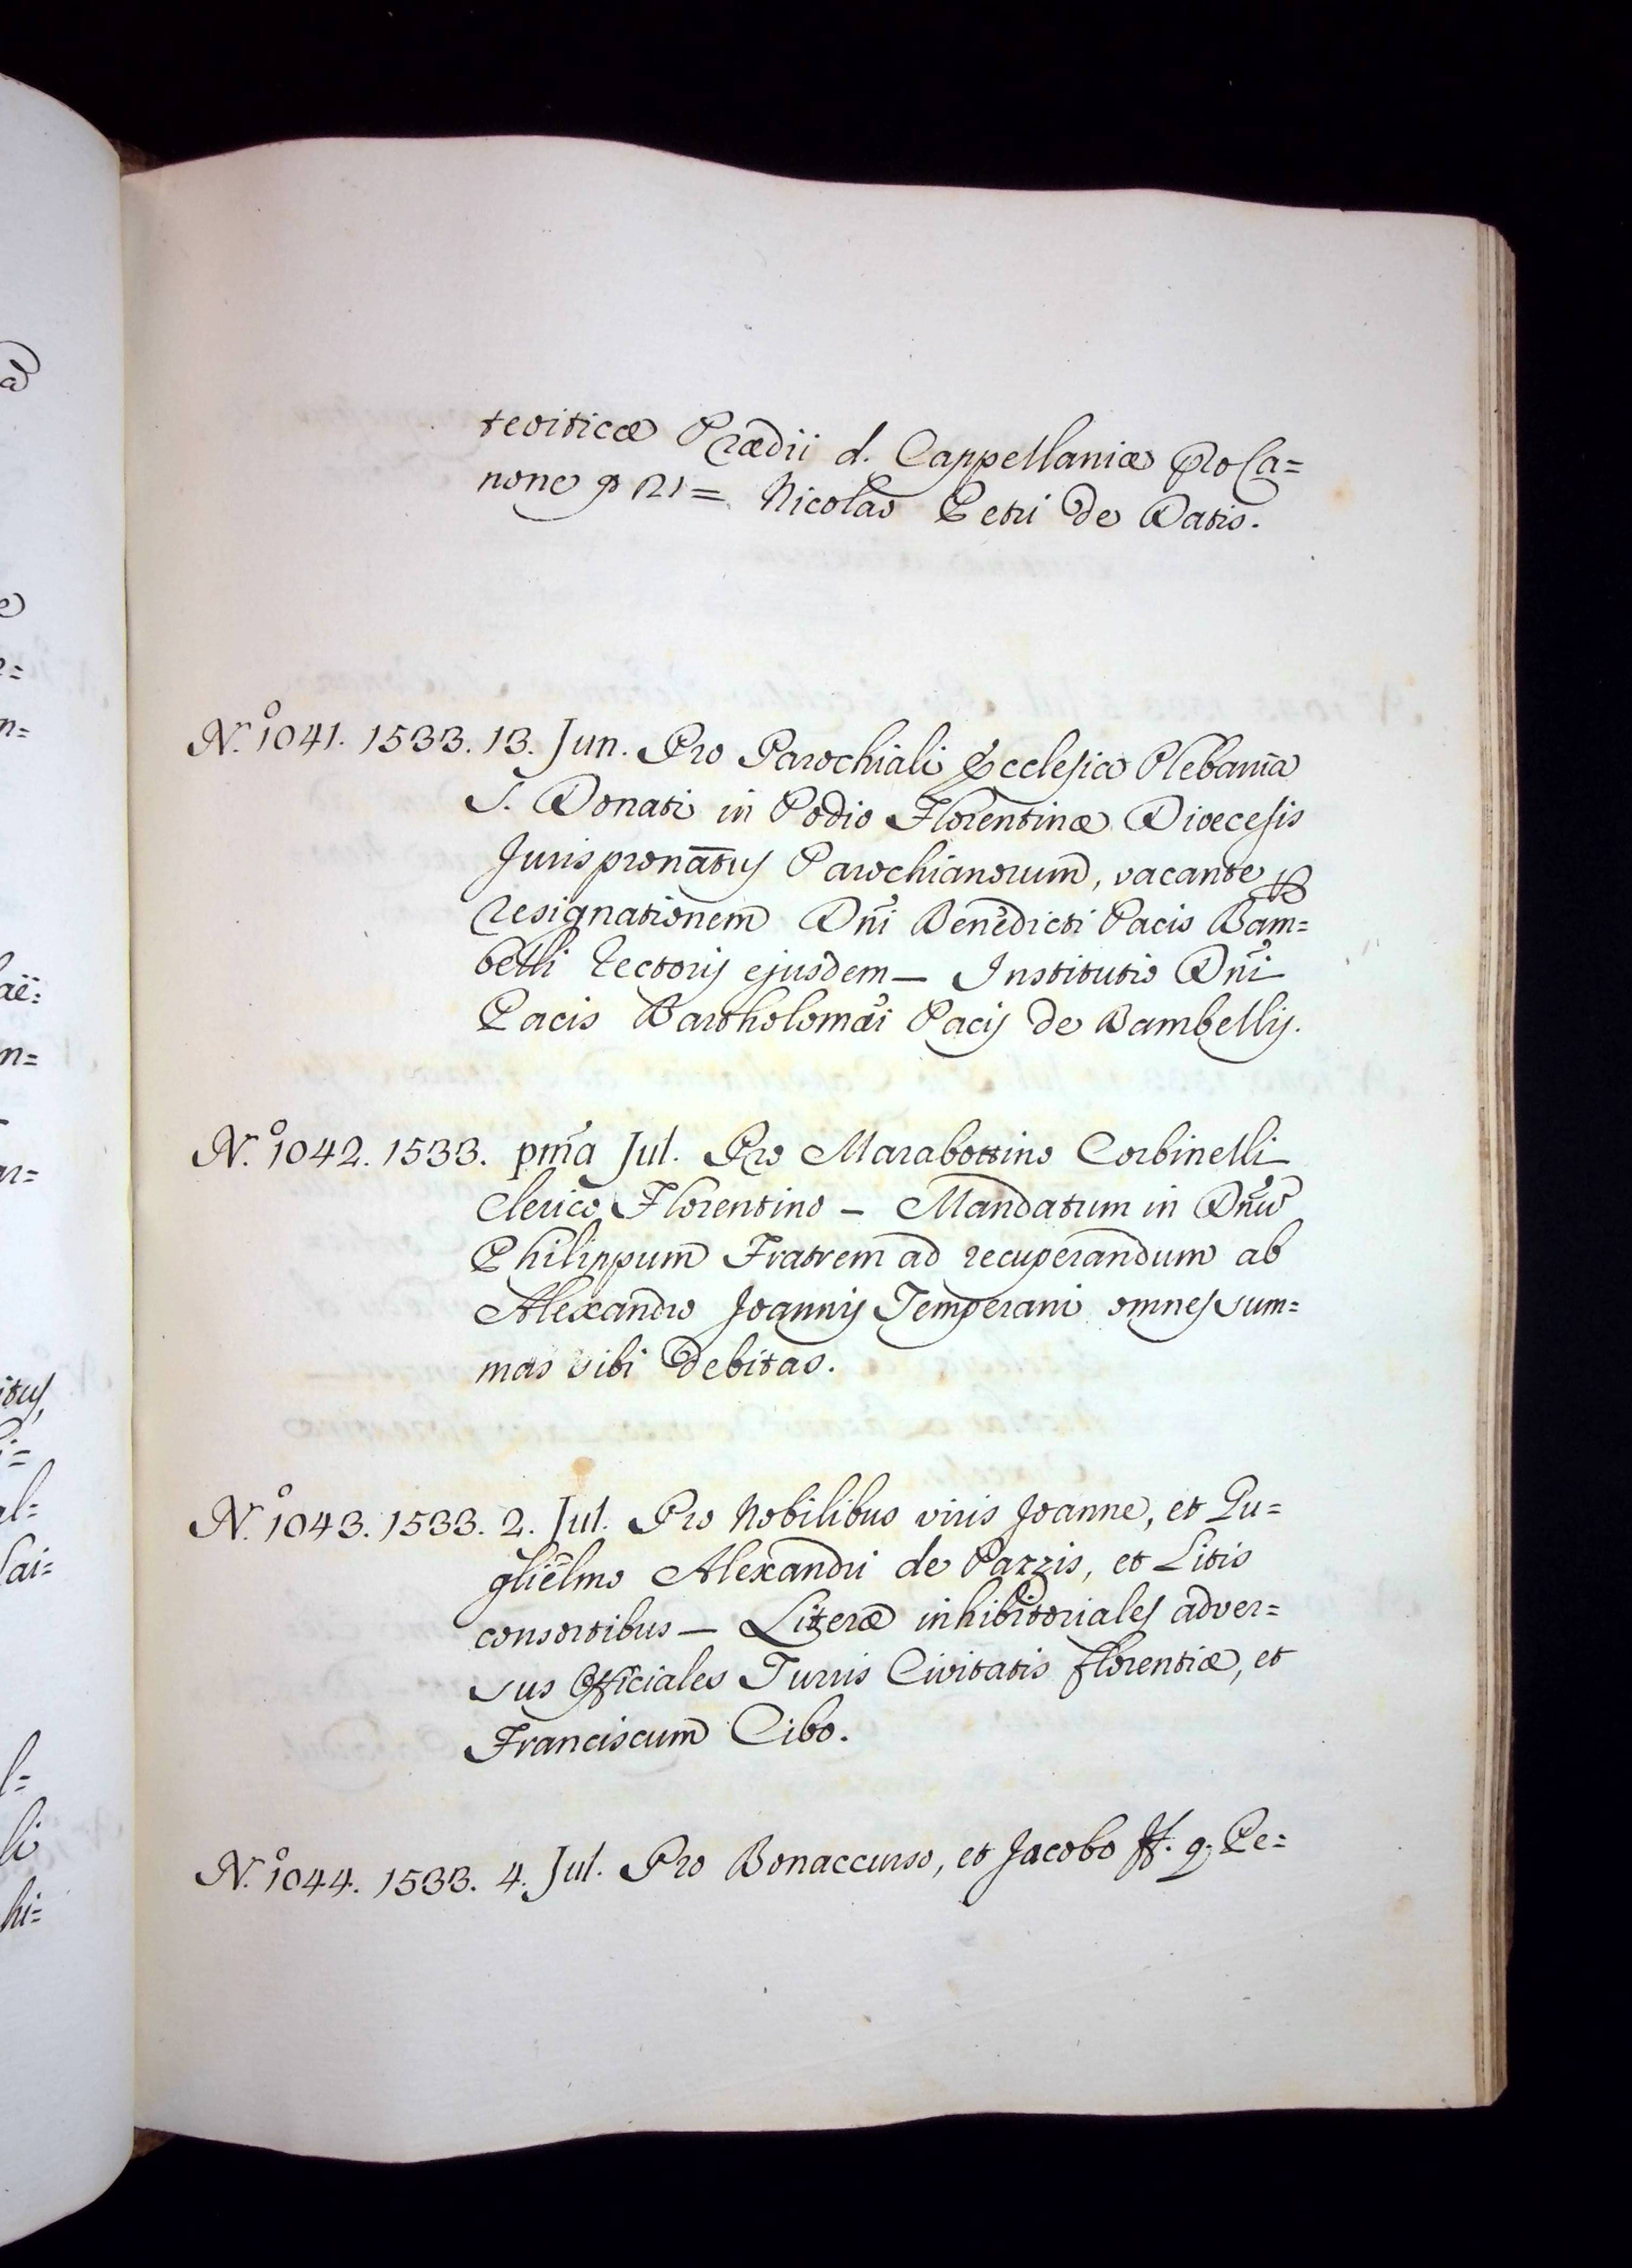 teoiticæ Prædii d. Cappellaniæ pro Ca=
none = Nicolao Petri de Datis.
N.o 1041. 1533. 13. Jun. Pro Parochiali Ecclesia Plebania
S. Donati in Podio Florentinæ Dioecesis
Jurispronatus Parochianorum, vacante
resignationem Dni Benedicti Pacis Bam=
belli Rectoris ejusdem — Institutio Dni
Pacis Bartholomæi Pacis de Bambellis.
N.o 1042. 1533. pma Jul. Pro Marabottino Corbinelli
Clerico Florentino — Mandatum in
Philippum Fratrem ad recuperandum ab
Alexandro Joannis Temperani omnes sum=
mas sibi debitas.
N.o 1043. 1533. 2. Jul. Pro Nobilibus viris Joanne, et Gu=
glielmo Alexandri de Pazzis, et Litis
consortibus — Literæ inhibitoriales adver=
sus Officiales Turris Civitatis florentiæ, et
Franciscum Cibo.
N.o 1044. 1533. 4. Jul. Pro Bonaccurso, et Jacobo ff. q. Pe=